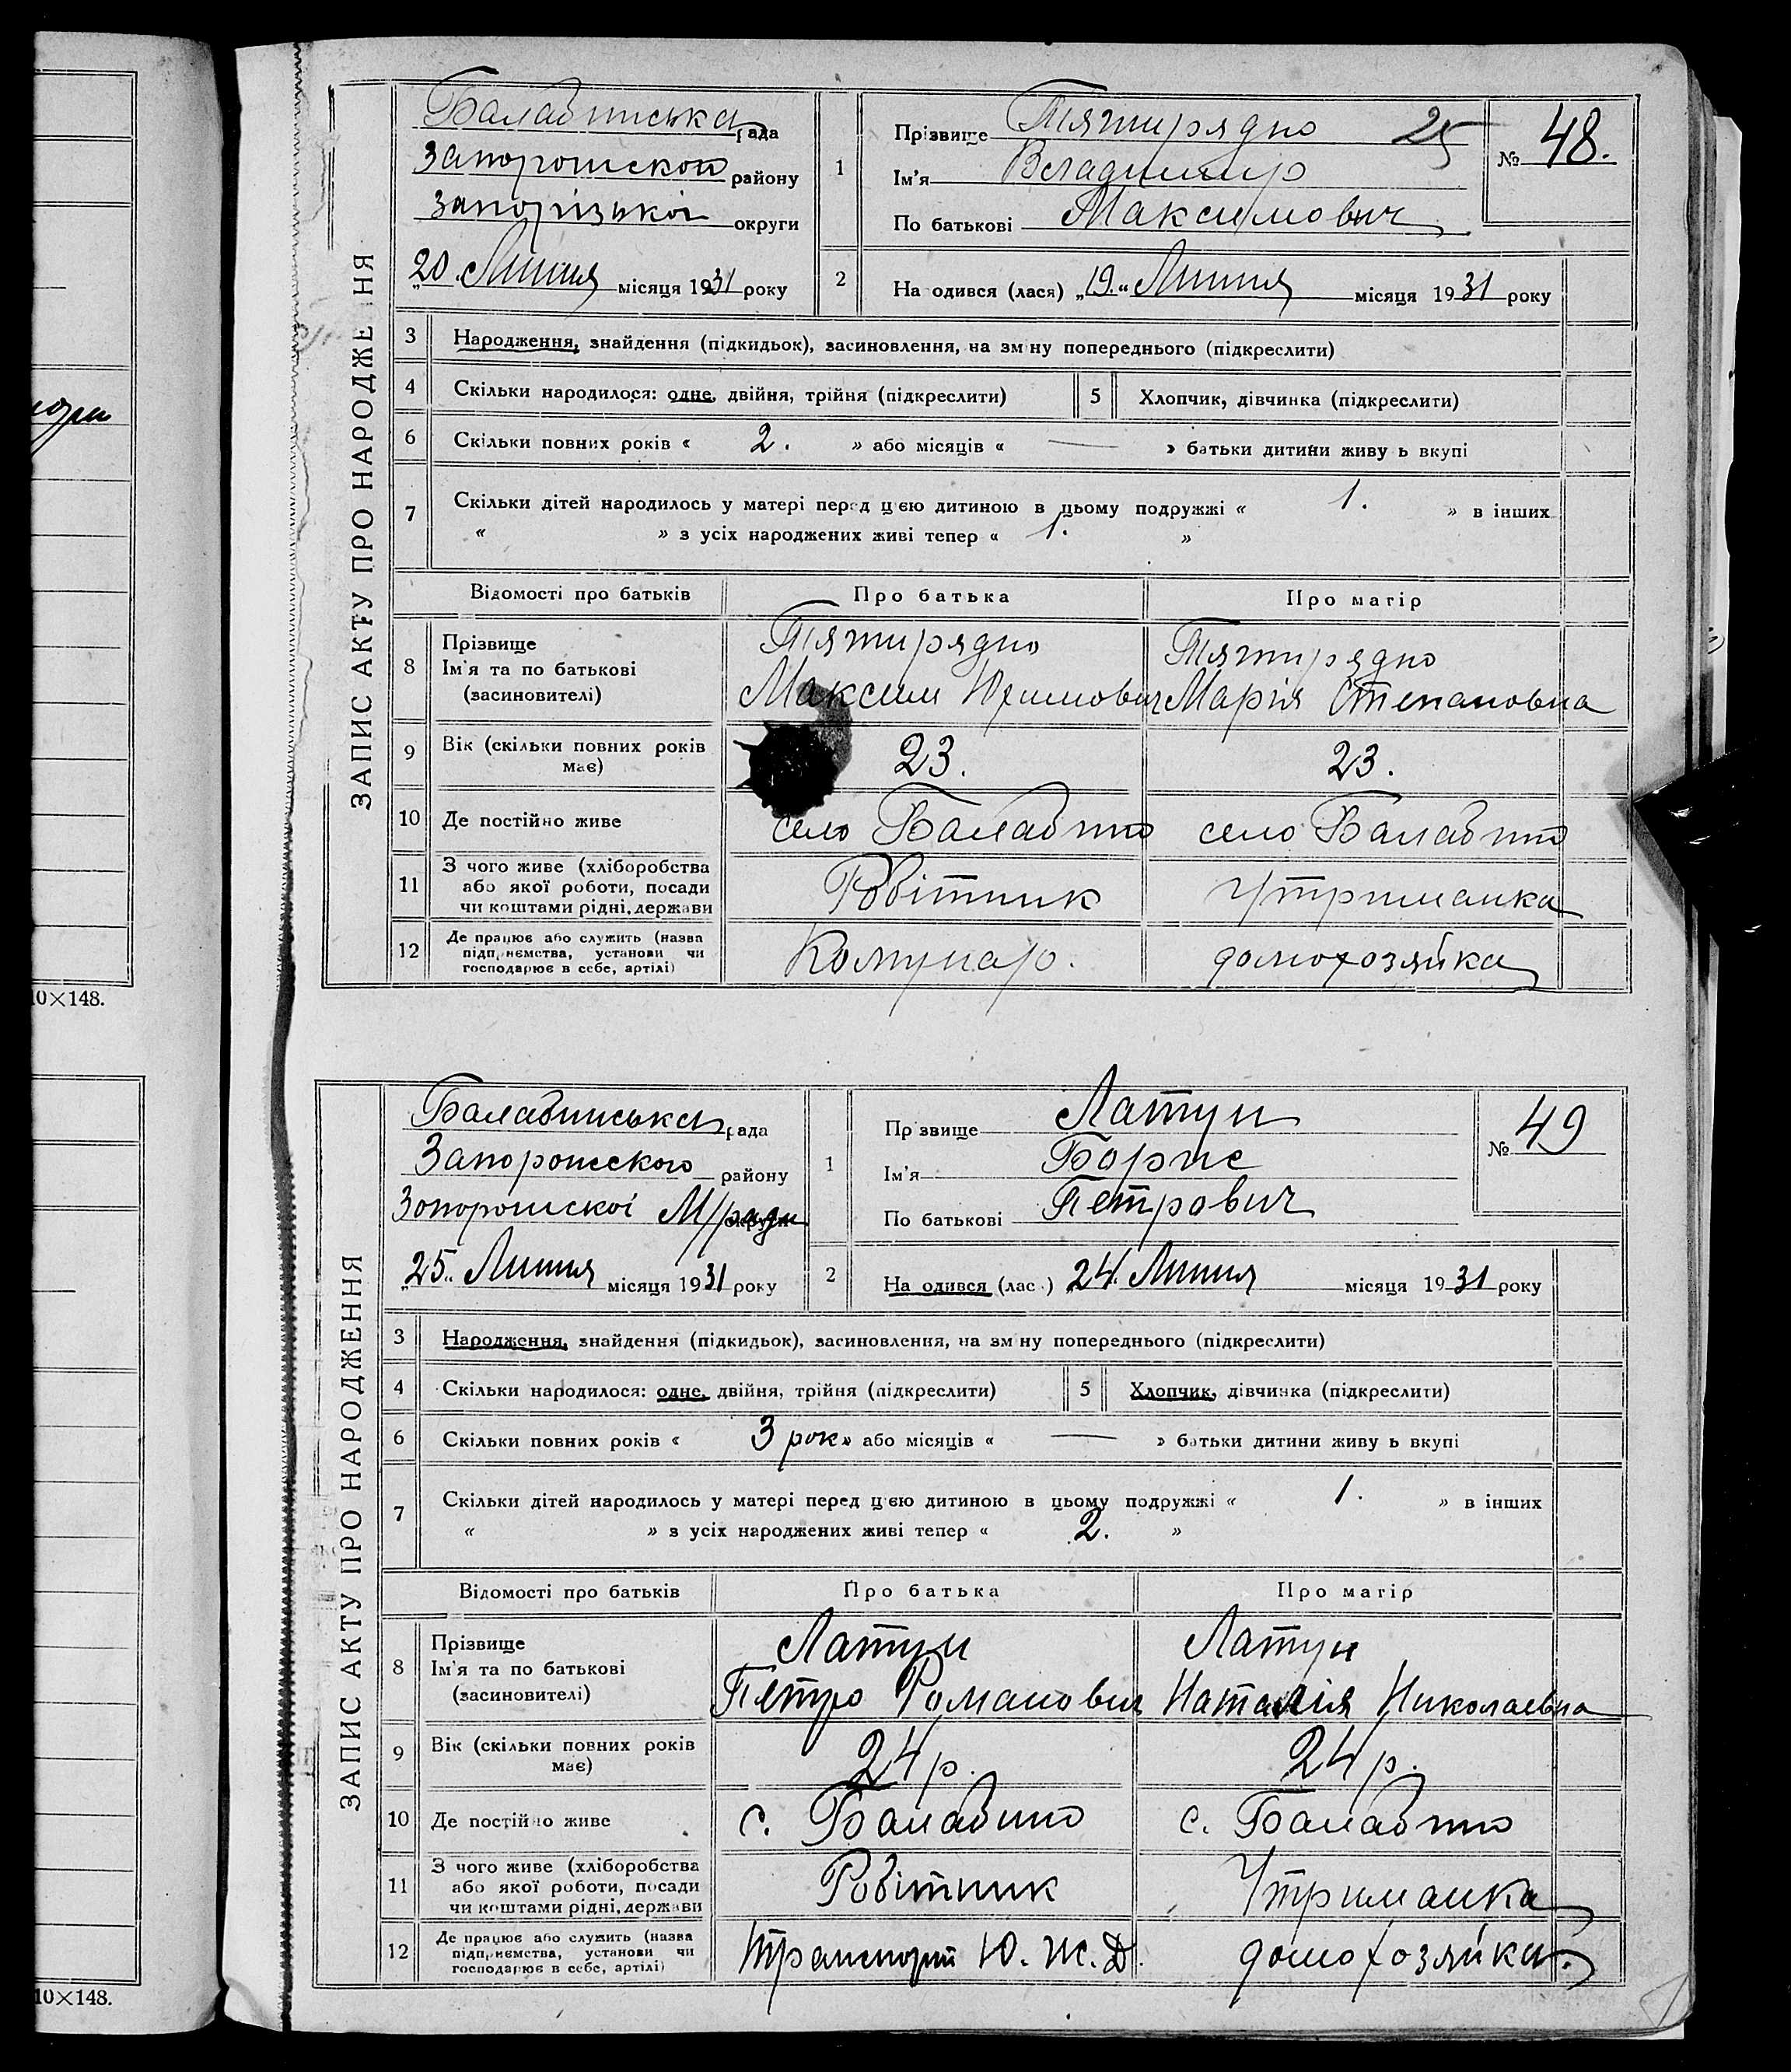 ндри
10×148.
10×148.
ЗАПИС АКТУ ПРО НАРОДЖЕ ІНЯ
Балабинська рада
Запорошского району
Запорізької округи
„20„ Липня місяця 1931 року
1
Прізвище Пятирядно 25
Ім'я Владимир
По батькові Максимович
№ 48.
2
На одився (лася) „19„ Липня місяця 1931 року
3 Народження, знайдення (підкидьок), засиновлення, на зм ну попереднього (підкреслити)
4 Скільки народилося: одне, двійня, трійня (підкреслити) 5 Хлопчик, дівчинка (підкреслити)
6 Скільки повних років « 2. » або місяців « — » батьки дитини живу ь вкупі
7 Скільки дітей народилось у матері перед цією дитиною в цьому подружжі « 1. » в інших
« » з усіх народжених живі тепер « 1. »
Відомості про батьків Про батька Про матір
8 Прізвище
Ім'я та по батькові
(засиновителі)
Пятирядно
Максим Юхимович
Пятирядно
Марія Степановна
9 Вік (скільки повних років має) 23. 23.
10 Де постійно живе село Балабино село Балабино
11 З чого живе (хліборобства
або якої роботи, посади
чи коштами рідні, держави
Робітник Утриманка
12 Де працює або служить (назва
підприємства, установи чи
господарює в себе, артілі)
Комунар. домохозяйка
ЗАПИС АКТУ ПРО НАРОДЖЕННЯ
Балабинська рада
Запорошского району
Запорошскої М/ради
„25„ Липня місяця 1931 року
1
Пр звище Латун
Ім'я Борис
По батькові Петрович
№ 49
2
На одився (лас ) „24„ Липня місяця 1931 року
3 Народження, знайдення (підкидьок), засиновлення, на зм ну попереднього (підкреслити)
4 Скільки народилося: одне, двійня, трійня (підкреслити) 5 Хлопчик, дівчинка (підкреслити)
6 Скільки повних років « 3 рок » або місяців « — » батьки дитини живу ь вкупі
7 Скільки дітей народилось у матері перед цією дитиною в цьому подружжі « 1. » в інших
« » з усіх народжених живі тепер « 2. »
Відомості про батьків Про батька Про матір
8 Прізвище
Ім'я та по батькові
(засиновителі)
Латун
Петро Романович
Латун
Наталія Николаевна
9 Вік (скільки повних років має) 24 р. 24 р.
10 Де постійно живе с. Балабино с. Балабино
11 З чого живе (хліборобства
або якої роботи, посади
чи коштами рідні, держави
Робітник Утриманка
12 Де працює або служить (назва
підприємства, установи чи
господарює в себе, артілі)
Транспорт Ю. Ж. Д. домохозяйка.